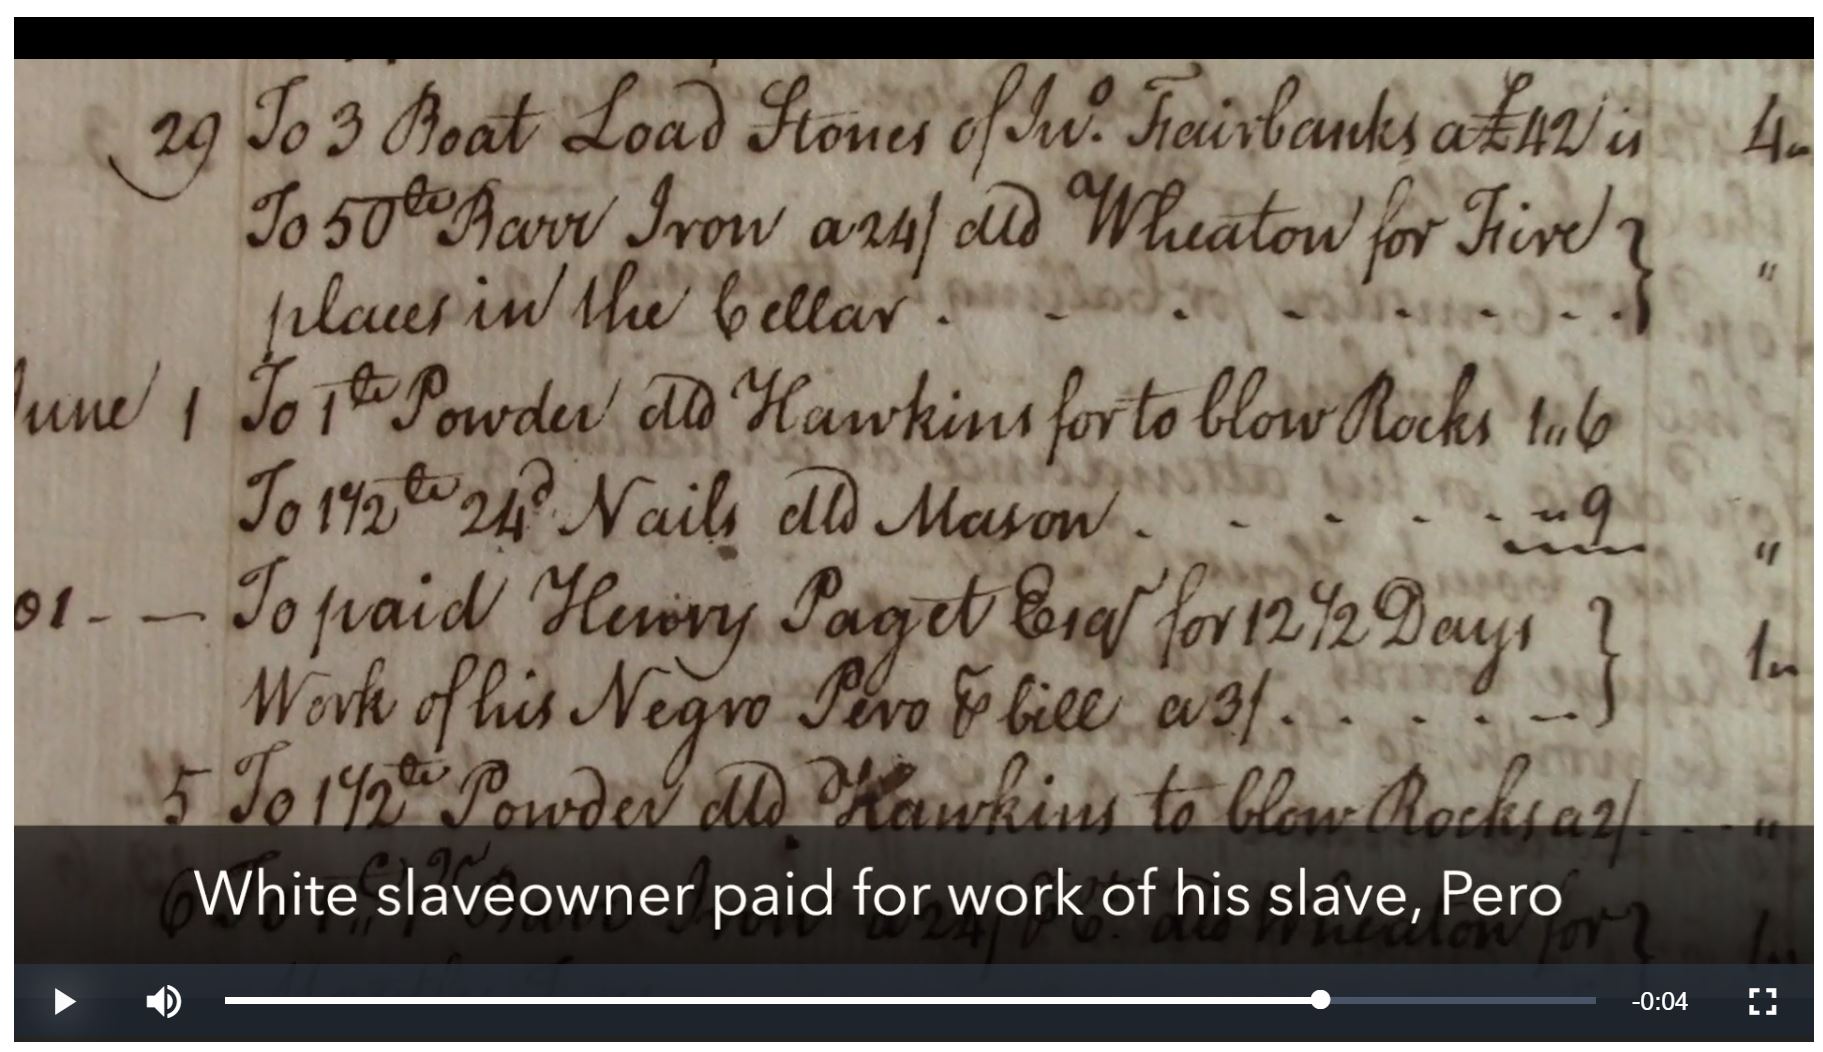 29 To 3 Boat Load Stones of Jno. Fairbanks a £42 is 4„
To 50 lb Barr Iron a 24/ dld Wheaton for Fire
places in the Cellar . - - - - - - - „
June 1 To 1 lb Powder dld Hawkins for to blow Rocks 1„6
To 1 1/2 lb 24d Nails dld Mason . - - - - - „9 „
01 - — To paid Henry Paget Esqr for 12 1/2 Days
Work of his Negro Pero & bill a 3/ . . . . - — 1„
5 To 1 1/2 lb Powder dld Hawkins to blow Rocks a 2/ . - - „
6 To Barr Iron a 24/ dld Wheaton for
White slaveowner paid for work of his slave, Pero
-0:04